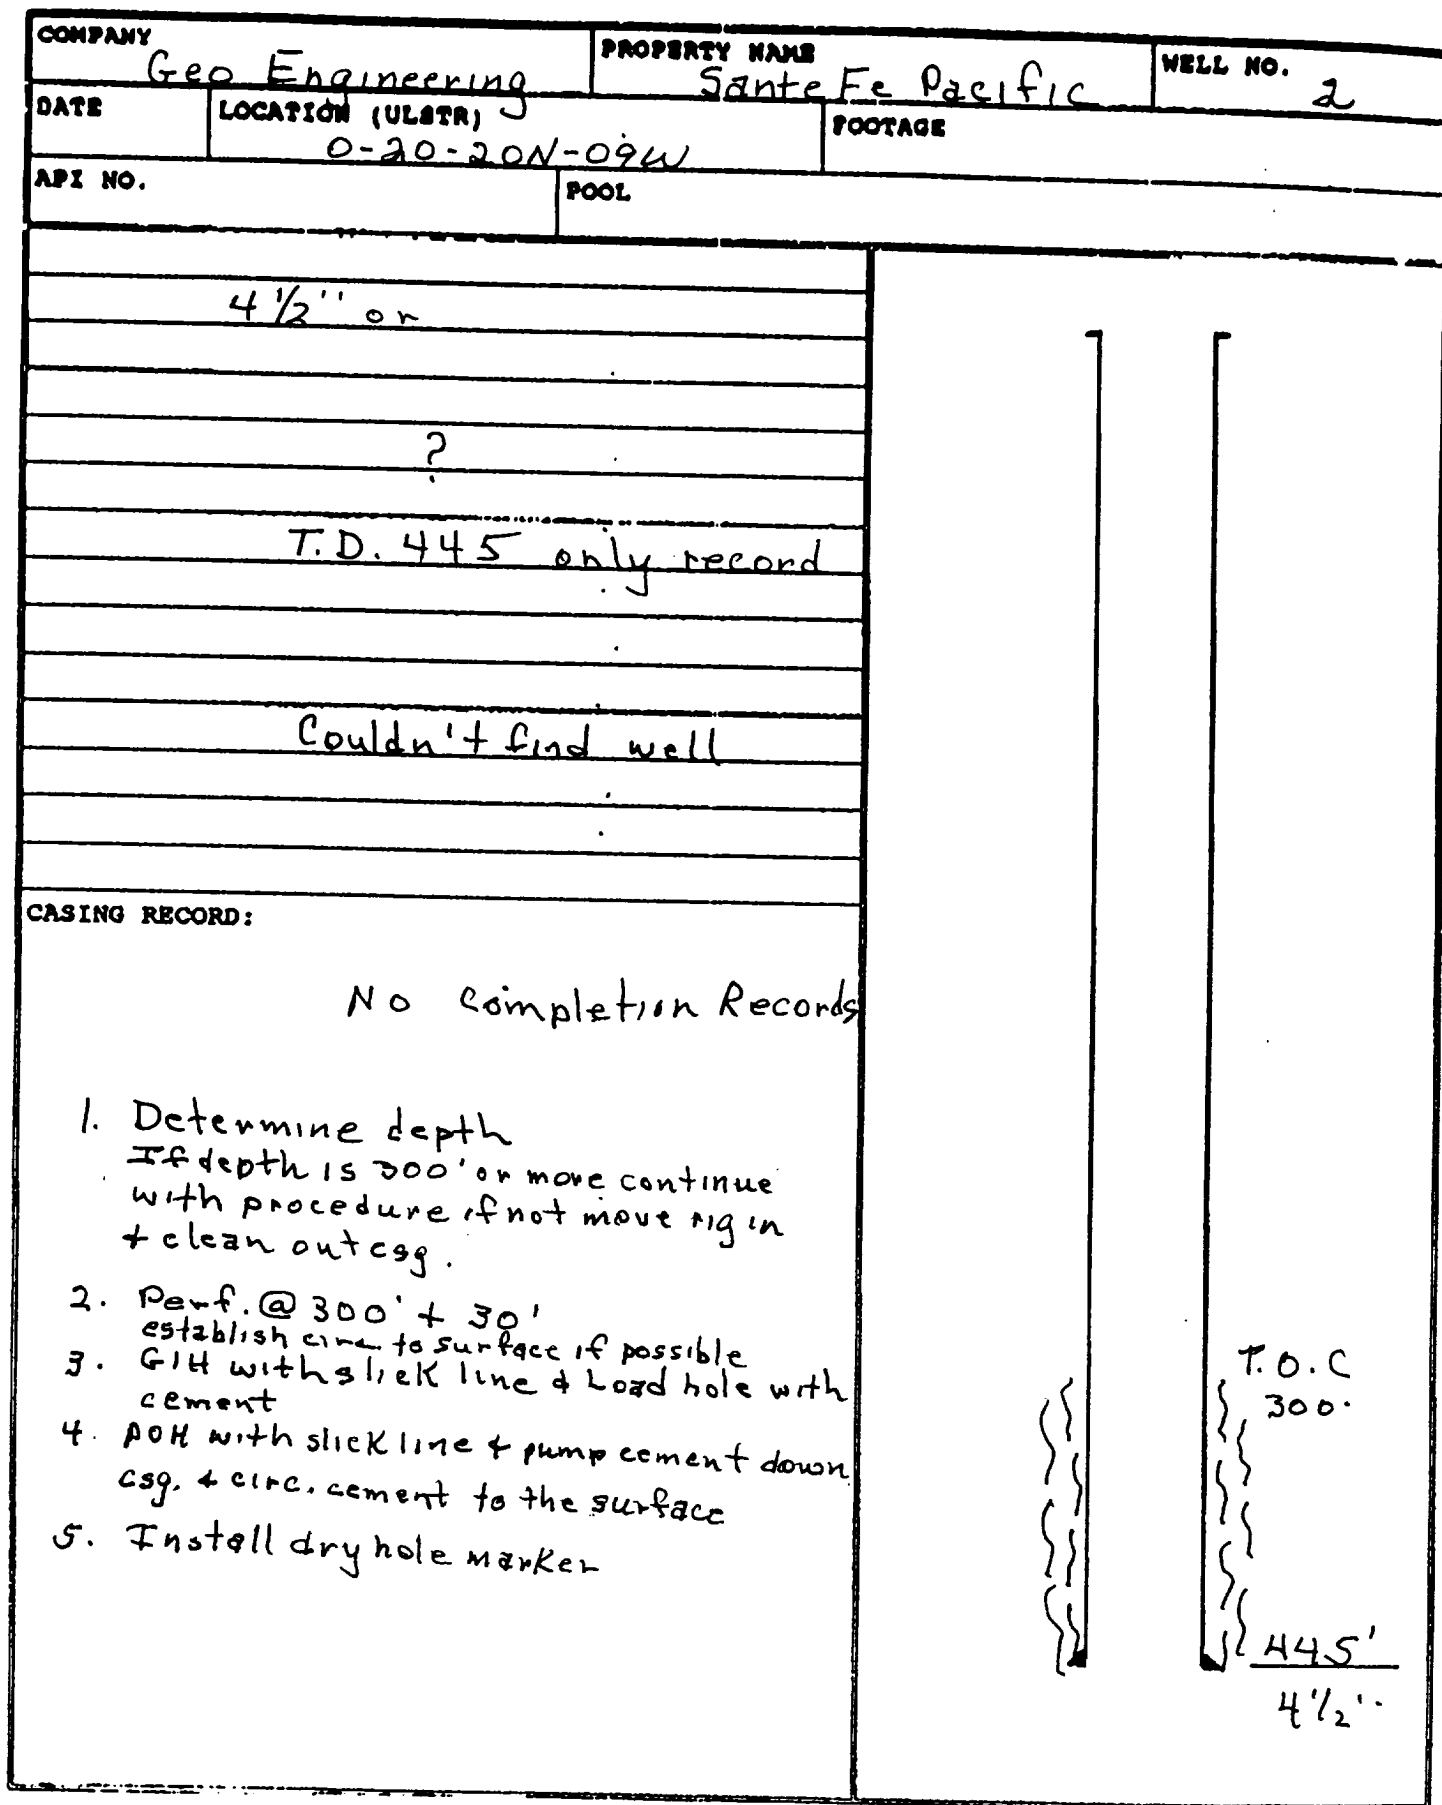 COMPANY
Geo Engineering
PROPERTY NAME
Sante Fe Pacific
WELL NO.
2
DATE
LOCATION (ULSTR)
O-20-20N-09W
FOOTAGE
API NO.
POOL
4 1/2" or
?
T.D. 445 only record
Couldn't find well
CASING RECORD:
No Completion Records
1. Determine depth
If depth is 300' or more continue
with procedure if not move rig in
+ clean out csg.
2. Perf. @ 300' + 30'
establish circ. to surface if possible
3. GIH with slick line & Load hole with
cement
4. POH with slick line & pump cement down
csg. & circ. cement to the surface
5. Install dry hole marker
T.O.C
300'
445'
4 1/2"